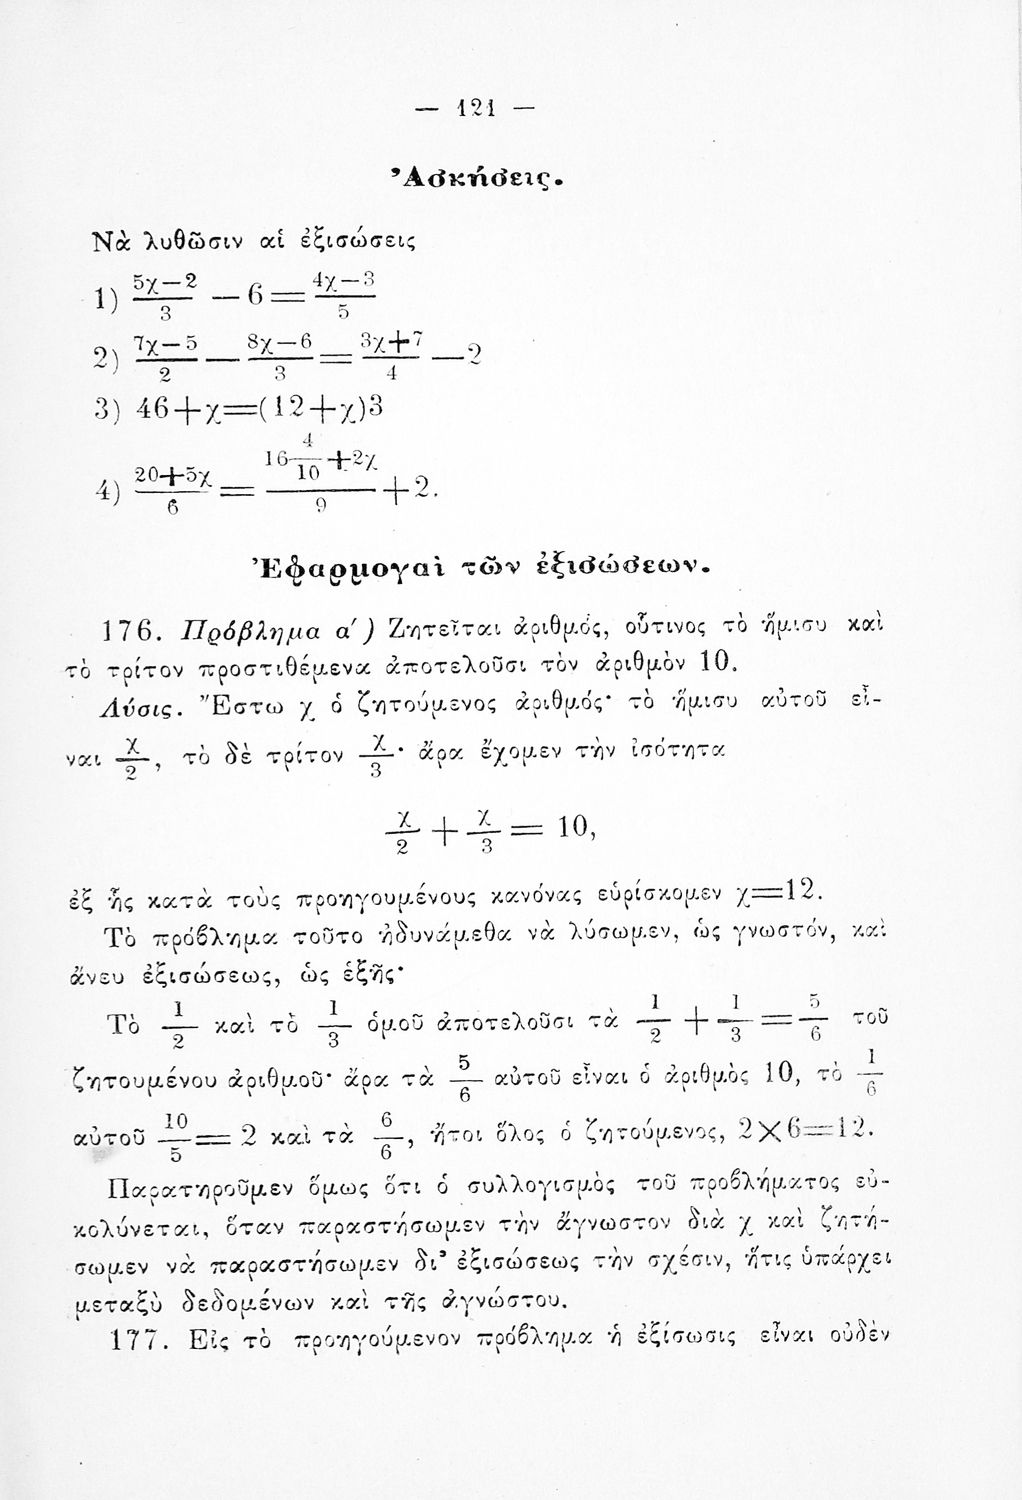 — 121 —
Ἀσκήσεις.
Νὰ λυθῶσιν αἱ ἐξισώσεις
1) (5χ—2)/3 — 6 = (4χ—3)/5
2) (7χ—5)/2 — (8χ—6)/3 = (3χ+7)/4 — 2
3) 46+χ=(12+χ)3
4) (20+5χ)/6 = (16 4/10 +2χ)/9 + 2.
Ἐφαρμογαὶ τῶν ἐξισώσεων.
176. Πρόβλημα α΄) Ζητεῖται ἀριθμός, οὗτινος τὸ ἥμισυ καὶ
τὸ τρίτον προστιθέμενα ἀποτελοῦσι τὸν ἀριθμὸν 10.
Λύσις. Ἔστω χ ὁ ζητούμενος ἀριθμός· τὸ ἥμισυ αὐτοῦ εἶ-
ναι χ/2, τὸ δὲ τρίτον χ/3· ἄρα ἔχομεν τὴν ἰσότητα
χ/2 + χ/3 = 10,
ἐξ ἧς κατὰ τοὺς προηγουμένους κανόνας εὑρίσκομεν χ=12.
Τὸ πρόβλημα τοῦτο ἠδυνάμεθα νὰ λύσωμεν, ὡς γνωστόν, καὶ
ἄνευ ἐξισώσεως, ὡς ἑξῆς·
Τὸ 1/2 καὶ τὸ 1/3 ὁμοῦ ἀποτελοῦσι τὰ 1/2 + 1/3 = 5/6 τοῦ
ζητουμένου ἀριθμοῦ· ἄρα τὰ 5/6 αὐτοῦ εἶναι ὁ ἀριθμὸς 10, τὸ 1/6
αὐτοῦ 10/5 = 2 καὶ τὰ 6/6, ἤτοι ὅλος ὁ ζητούμενος, 2×6=12.
Παρατηροῦμεν ὅμως ὅτι ὁ συλλογισμὸς τοῦ προβλήματος εὐ-
κολύνεται, ὅταν παραστήσωμεν τὴν ἄγνωστον διὰ χ καὶ ζητή-
σωμεν νὰ παραστήσωμεν δι' ἐξισώσεως τὴν σχέσιν, ἥτις ὑπάρχει
μεταξὺ δεδομένων καὶ τῆς ἀγνώστου.
177. Εἰς τὸ προηγούμενον πρόβλημα ἡ ἐξίσωσις εἶναι οὐδὲν